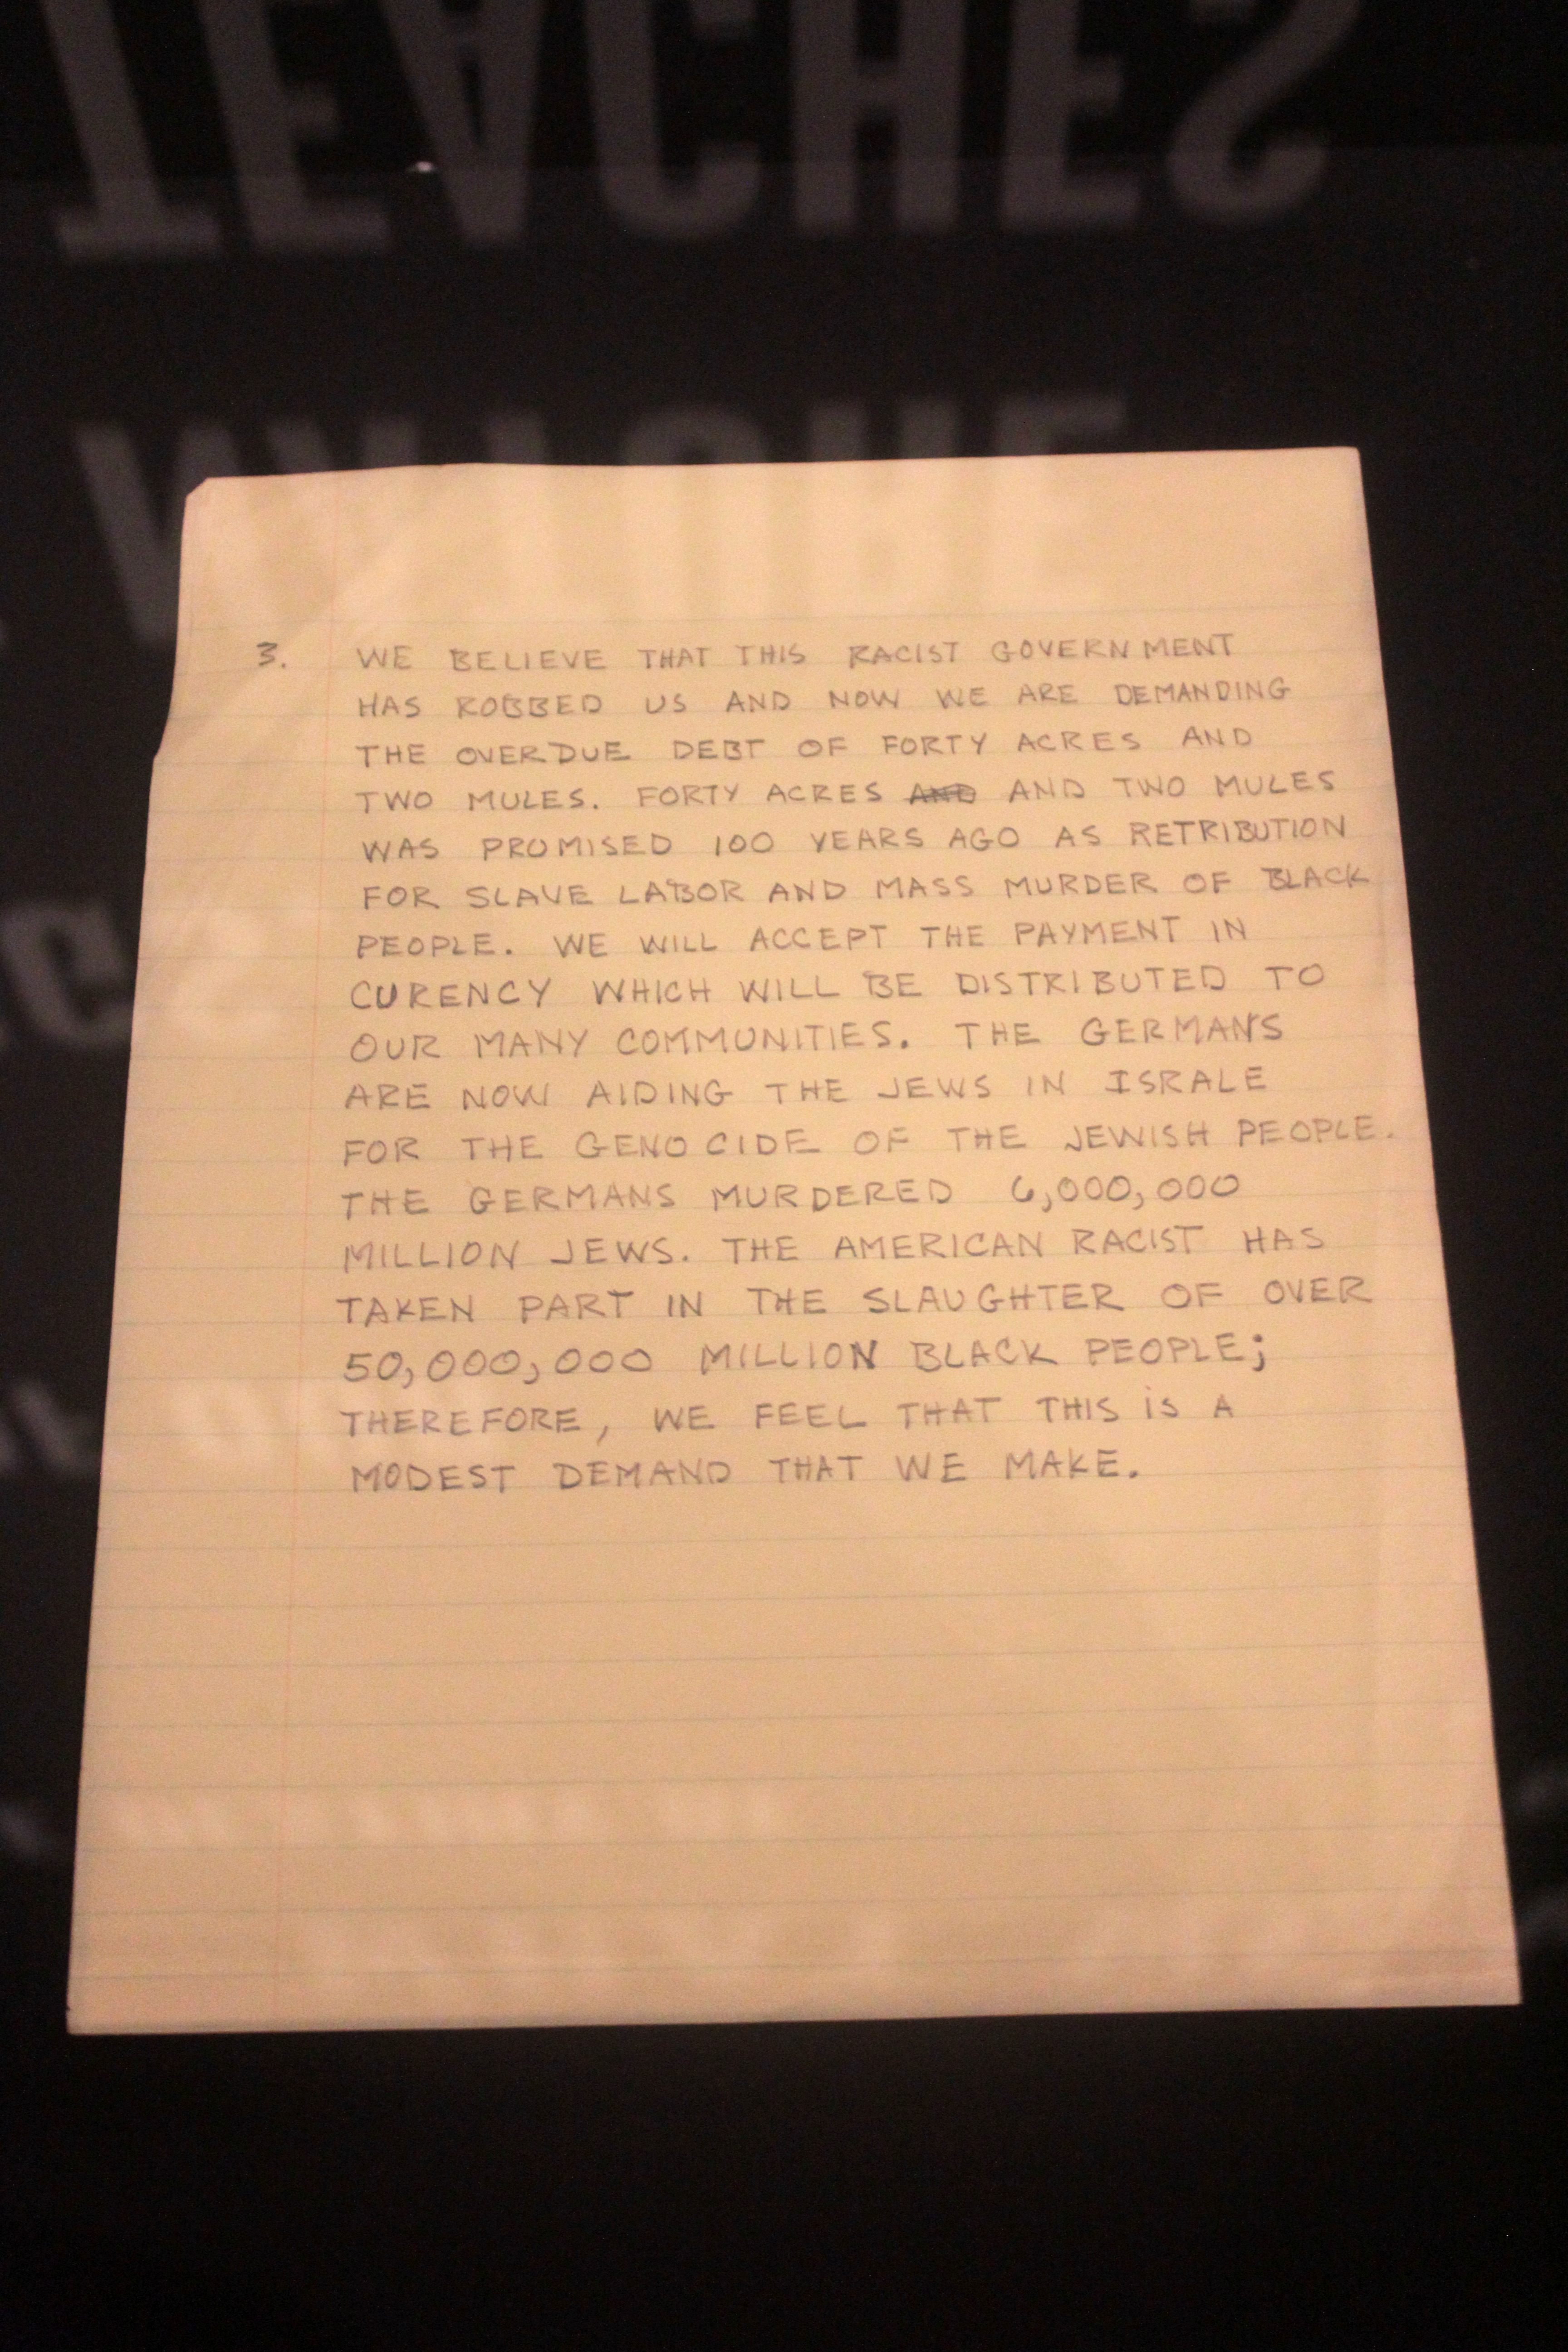 TEACHES
3. WE BELIEVE THAT THIS RACIST GOVERNMENT
HAS ROBBED US AND NOW WE ARE DEMANDING
THE OVERDUE DEBT OF FORTY ACRES AND
TWO MULES. FORTY ACRES AND AND TWO MULES
WAS PROMISED 100 YEARS AGO AS RETRIBUTION
FOR SLAVE LABOR AND MASS MURDER OF BLACK
PEOPLE. WE WILL ACCEPT THE PAYMENT IN
CURENCY WHICH WILL BE DISTRIBUTED TO
OUR MANY COMMUNITIES. THE GERMANS
ARE NOW AIDING THE JEWS IN ISRALE
FOR THE GENOCIDE OF THE JEWISH PEOPLE.
THE GERMANS MURDERED 6,000,000
MILLION JEWS. THE AMERICAN RACIST HAS
TAKEN PART IN THE SLAUGHTER OF OVER
50,000,000 MILLION BLACK PEOPLE;
THEREFORE, WE FEEL THAT THIS IS A
MODEST DEMAND THAT WE MAKE.